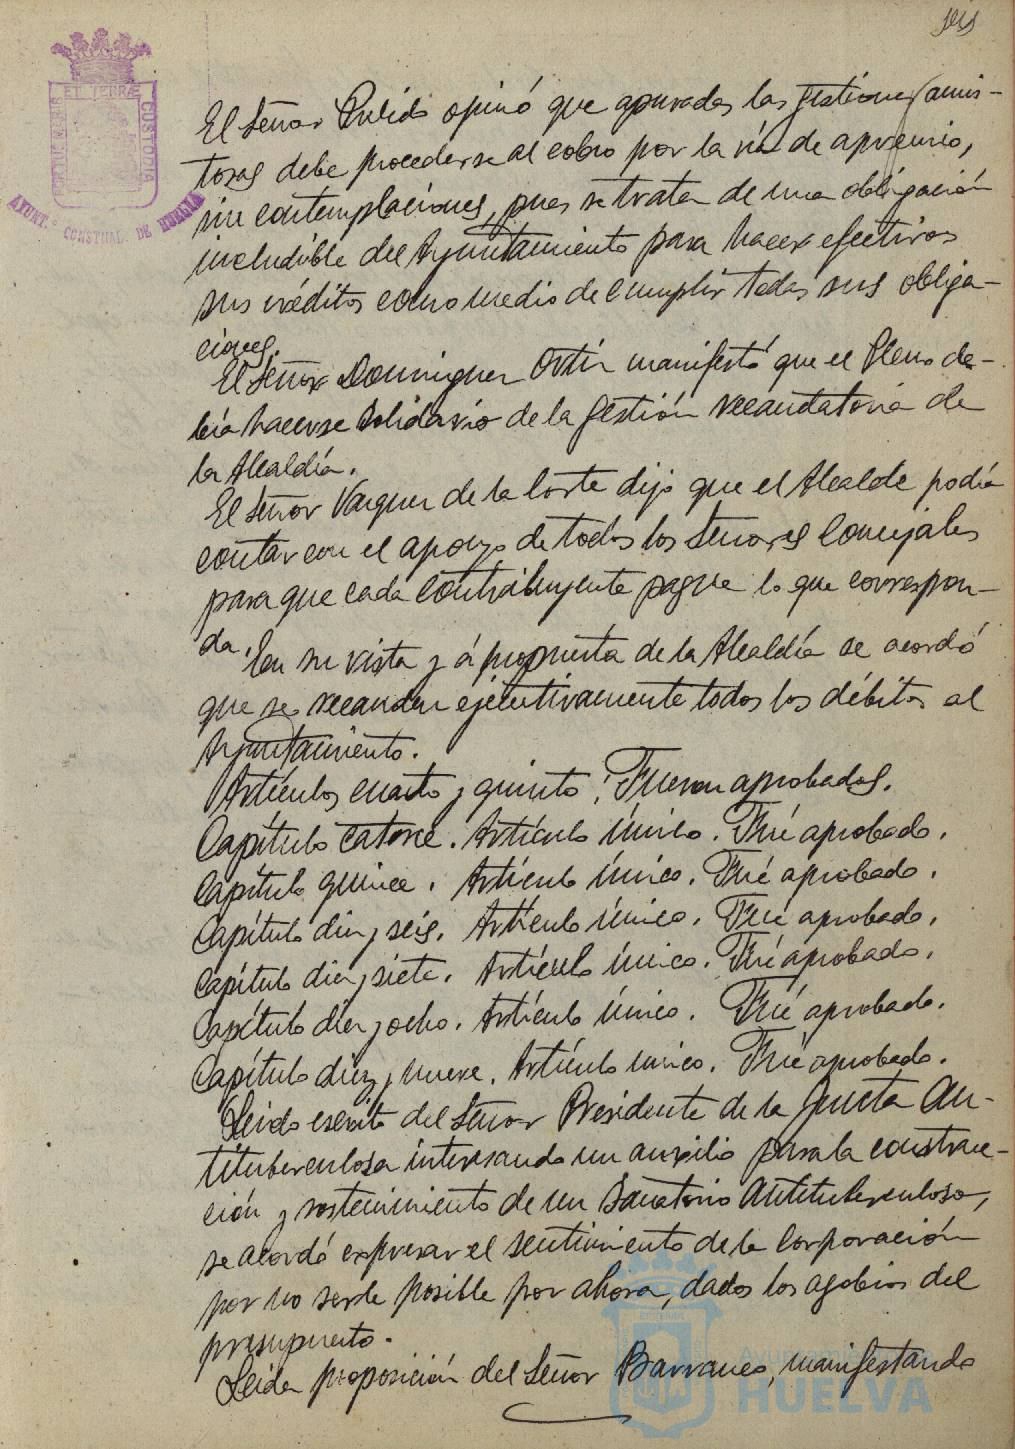 seis
PORTUS MARIS
ET TERRÆ
CUSTODIA
AYUNT.º CONSTNAL. DE HUELVA
El Señor Pulido opinó que apuradas las gestiones amis-
tosas debe procederse al cobro por la vía de apremio,
sin contemplaciones, pues se trata de una obligación
includible del Ayuntamiento para hacer efectivos
sus créditos como medio de cumplir todas sus obliga-
ciones.
El Señor Dominguez Ortiz manifestó que el Pleno de-
bía hacerse solidario de la gestión recaudatoria de
la Alcaldía.
El Señor Vazquez de la Corte dijo que el Alcalde podía
contar con el apoyo de todos los Señores Concejales
para que cada contribuyente pague lo que correspon-
da.
En su vista y á propuesta de la Alcaldía se acordó
que se recauden ejecutivamente todos los débitos al
Ayuntamiento.
Artículos cuarto y quinto. Fueron aprobados.
Capítulo catorce. Artículo único. Fué aprobado.
Capítulo quince. Artículo único. Fué aprobado.
Capítulo diez y seis. Artículo único. Fué aprobado.
Capítulo diez y siete. Artículo único. Fué aprobado.
Capítulo diez y ocho. Artículo único. Fué aprobado.
Capítulo diez y nueve. Artículo único. Fué aprobado.
Leido escrito del Señor Presidente de la Junta An-
tituberculosa interesando un auxilio para la construc-
ción y sostenimiento de un Sanatorio Antituberculoso,
se acordó expresar el sentimiento de la Corporación
por no serle posible por ahora, dados los agobios del
presupuesto.
Leida proposición del Señor Barranco, manifestando
Ayuntamiento de
HUELVA